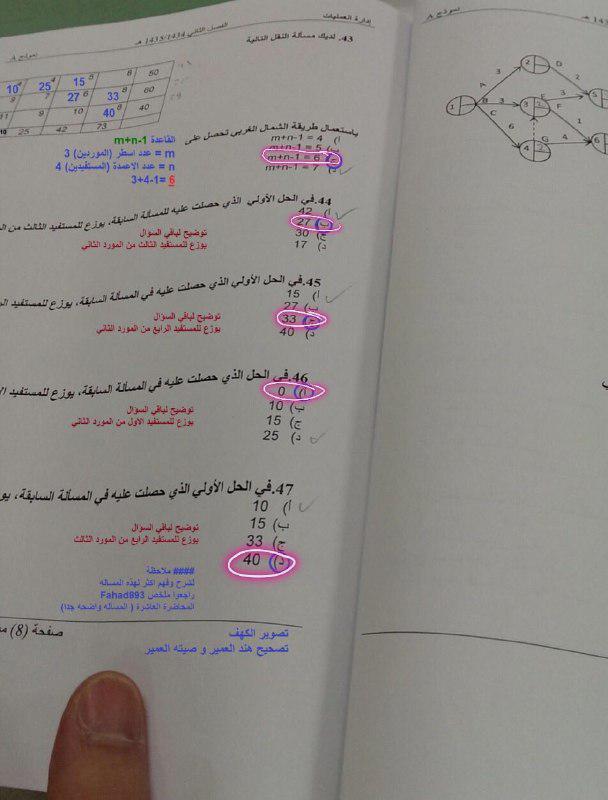 نموذج A
إدارة العمليات
الفصل الثاني 1435/1434 هـ
نموذج A
43. لديك مسألة النقل التالية
10 4 25 15 5 8 50
9 7 27 6 33 8 60
11 9 10 40 8 40
10 25 42 73
باستعمال طريقة الشمال الغربي تحصل على
أ) m+n-1 = 4
ب) m+n-1 = 5
ج) m+n-1 = 6
د) m+n-1 = 7
القاعدة m+n-1
m = عدد اسطر (الموردين) 3
n = عدد الاعمدة (المستفيدين) 4
3+4-1= 6
44.في الحل الأولي الذي حصلت عليه للمسألة السابقة، يوزع للمستفيد الثالث من
أ) 42
ب) 27
ج) 30
د) 17
توضيح لباقي السؤال
يوزع للمستفيد الثالث من المورد الثاني
45.في الحل الأولي الذي حصلت عليه في المسألة السابقة، يوزع للمستفيد
أ) 15
ب) 27
ج) 33
د) 40
توضيح لباقي السؤال
يوزع للمستفيد الرابع من المورد الثاني
46.في الحل الذي حصلت عليه في المسألة السابقة، يوزع للمستفيد
أ) 0
ب) 10
ج) 15
د) 25
توضيح لباقي السؤال
يوزع للمستفيد الاول من المورد الثاني
47.في الحل الأولي الذي حصلت عليه في المسألة السابقة،
أ) 10
ب) 15
ج) 33
د) 40
توضيح لباقي السؤال
يوزع للمستفيد الرابع من المورد الثالث
#### ملاحظة
لشرح وفهم اكثر لهذه المساله
راجعوا ملخص Fahad893
المحاضرة العاشرة ( المساله واضحه جدا)
صفحة (8)
تصوير الكهف
تصحيح هند العمير و صيته العمير
1 2 3 4 5 6
A 3
B 3
C 6
D 2
E 3
F 1
G 4